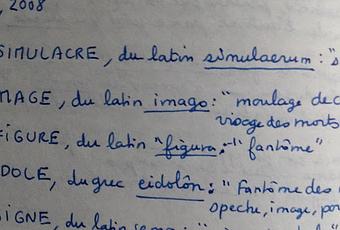 , 2008
SIMULACRE, du latin simulacrum : "
MAGE, du latin imago : " moulage de c
visage des morts
FIGURE, du latin "figura," "fantôme"
DOLE, du grec eidolôn : " Fantôme des
speche, image, por
SIGNE, du latin